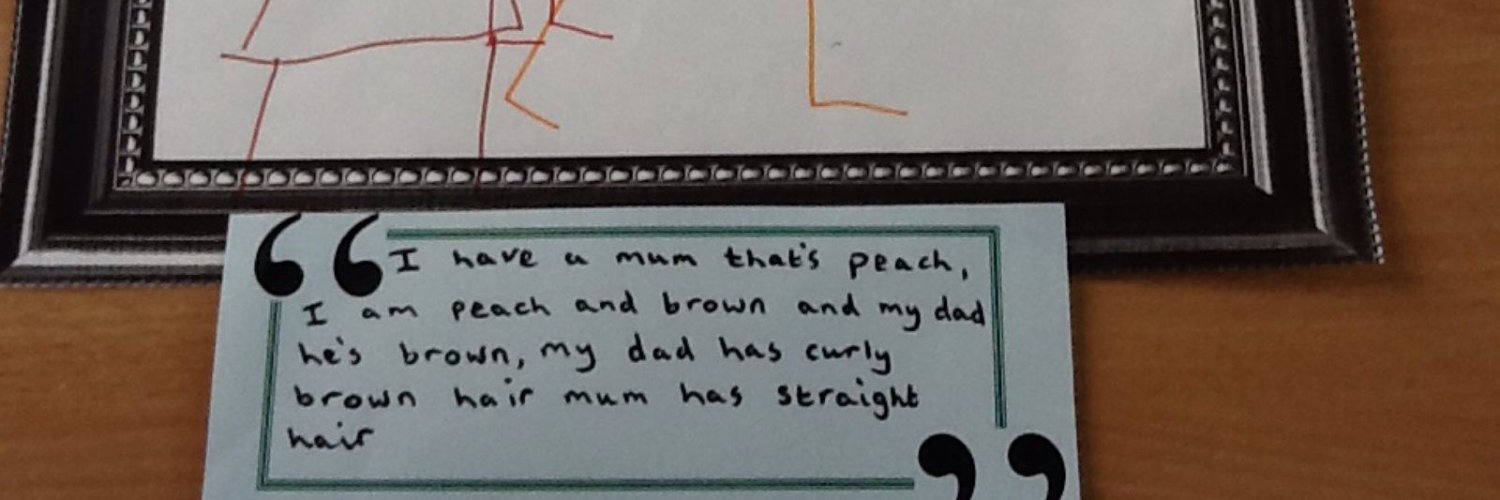 I have a mum that's peach,
I am peach and brown and my dad
he's brown, my dad has curly
brown hair mum has straight
hair